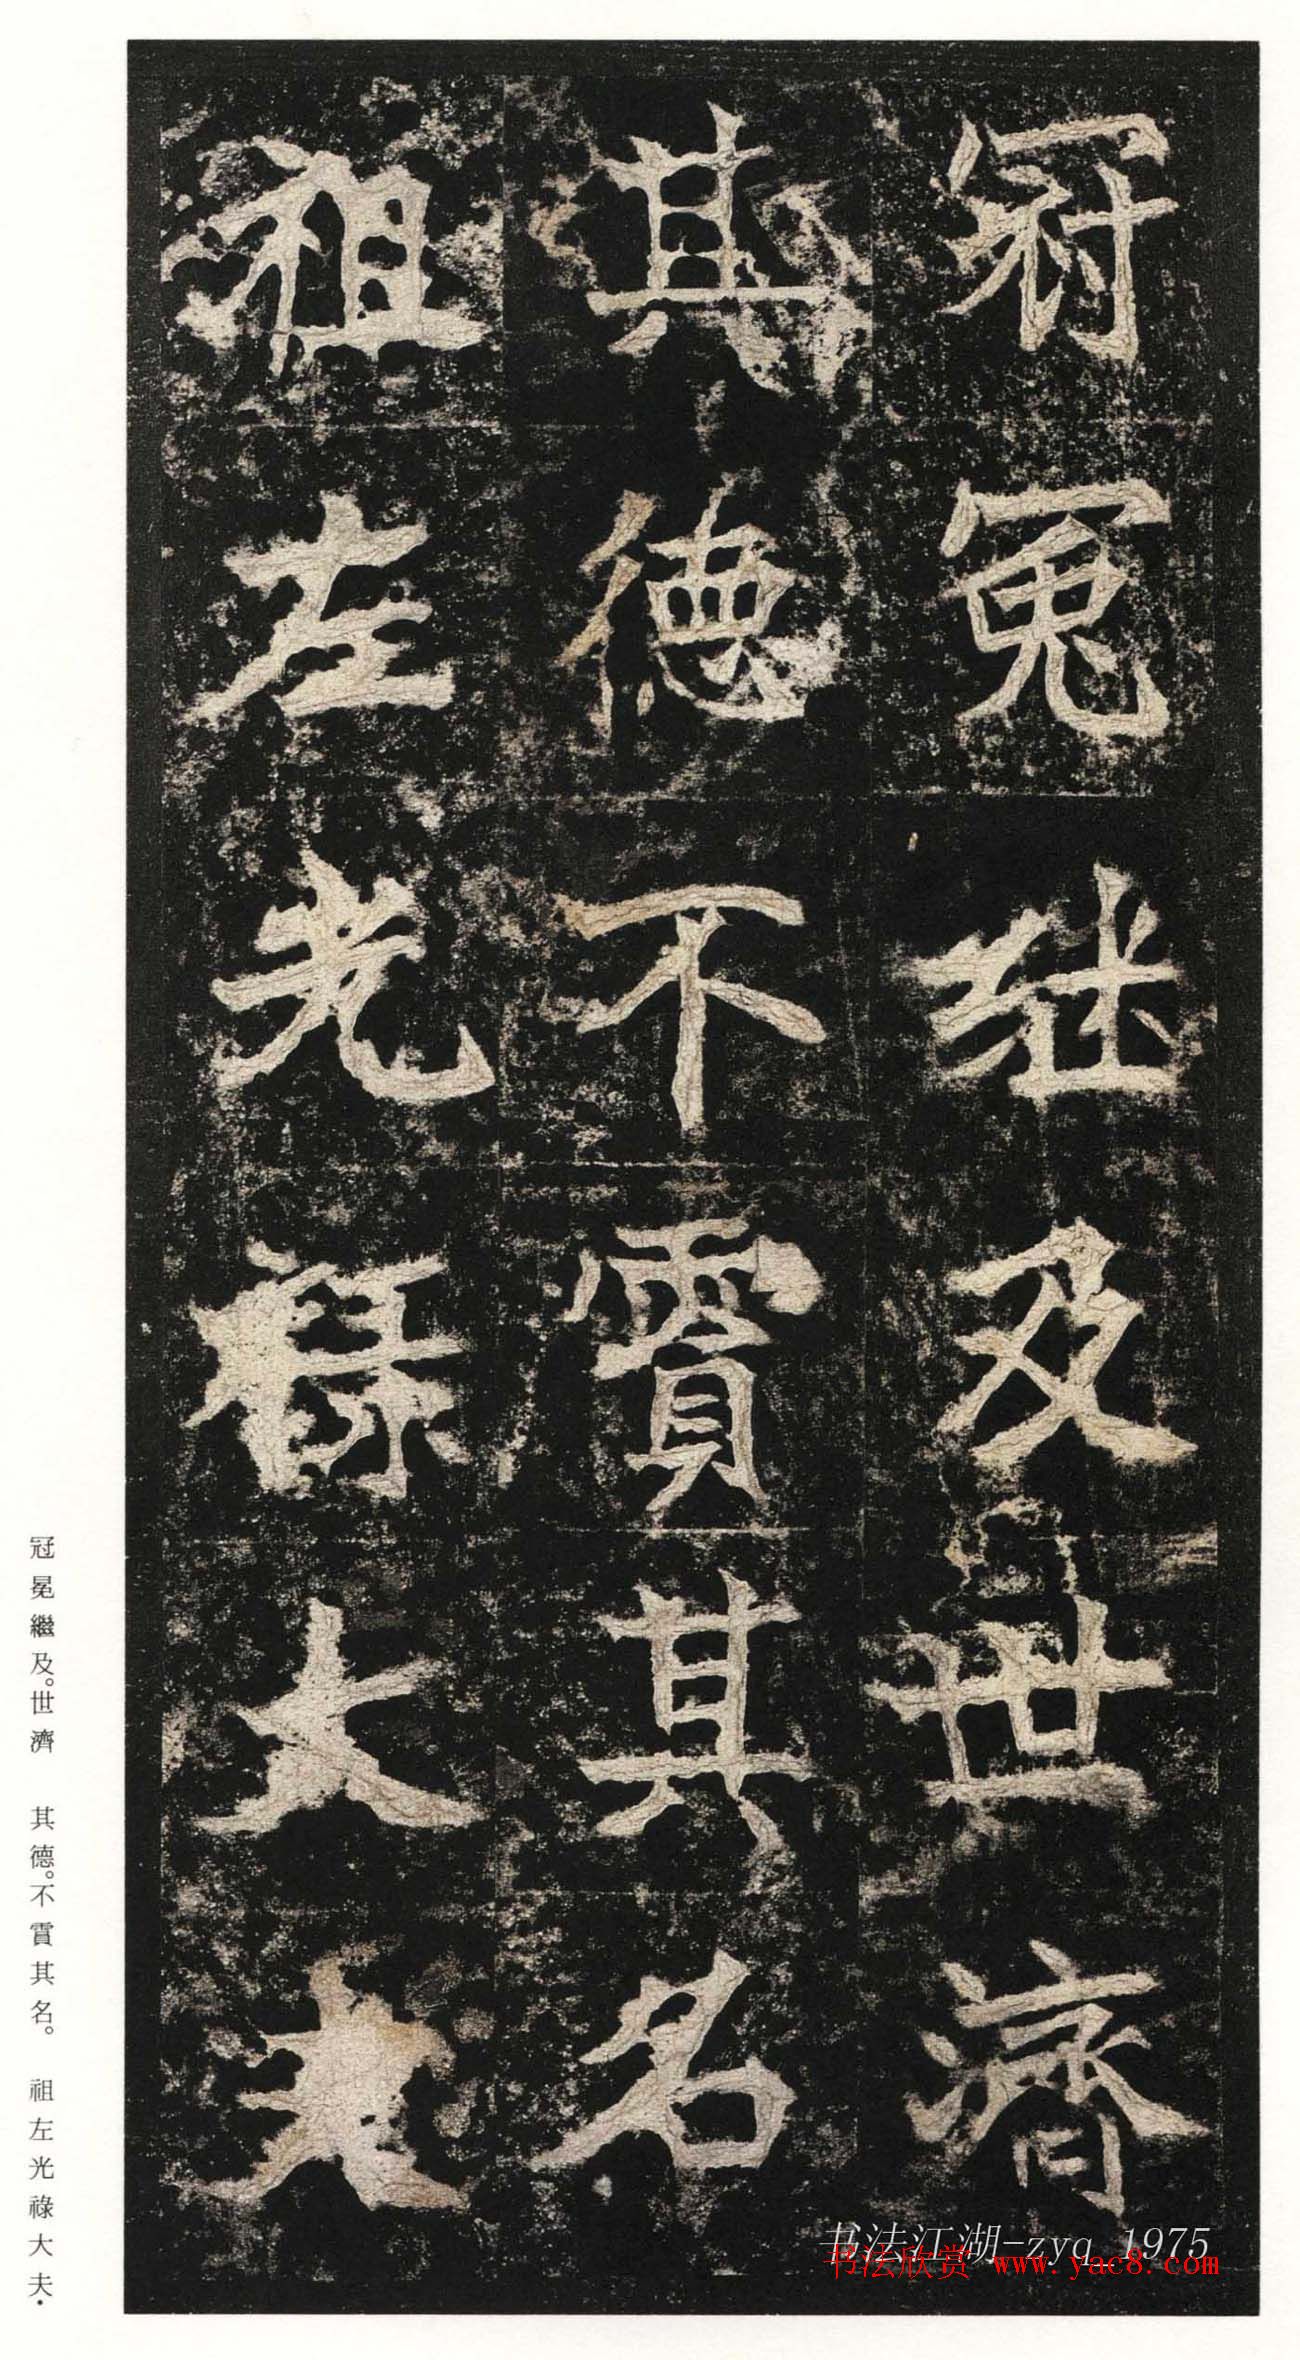 冠冕继及世濟
其德不賈其名
祖左光祿大夫
冠冕繼及。世濟　其德。不賈其名。　祖左光祿大夫·
书法江湖-zyq_1975
书法欣赏 www.yac8.com